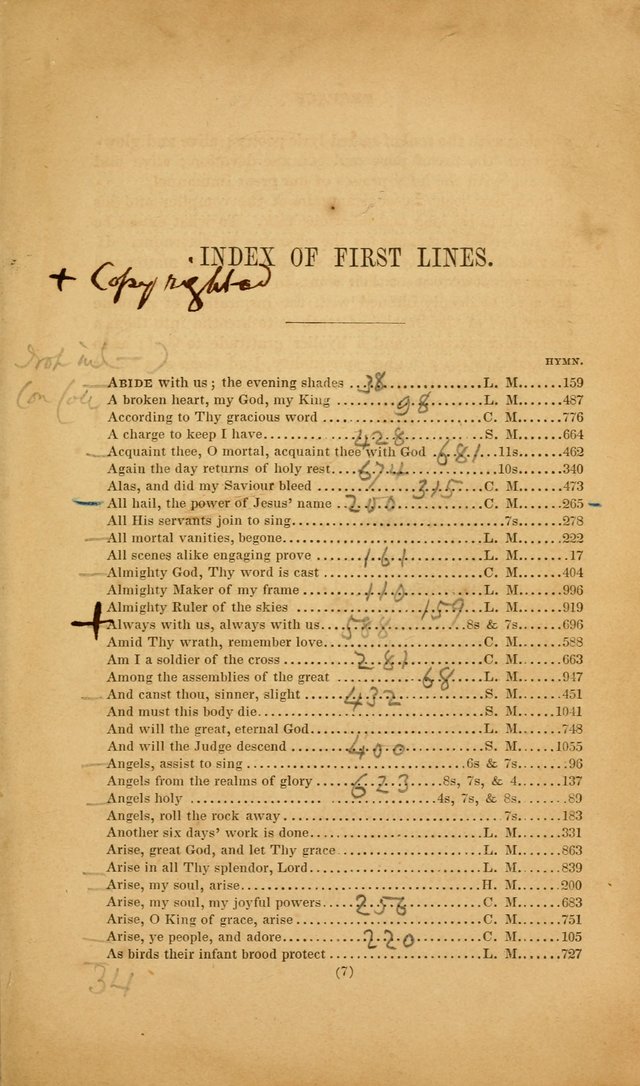 INDEX OF FIRST LINES.
+ Copyrighted
HYMN.
ABIDE with us; the evening shades ... 38 ................L. M.......159
A broken heart, my God, my King ......... 98 .........L. M.......487
According to Thy gracious word .........................C. M.......776
A charge to keep I have............ 428 ..............S. M.......664
Acquaint thee, O mortal, acquaint thee with God .. 681 ...11s.......462
Again the day returns of holy rest.... 674 ..............10s.......340
Alas, and did my Saviour bleed ............ 315 ........C. M.......473
All hail, the power of Jesus' name .. 200 ..............C. M.......265
All His servants join to sing...............................7s.......278
All mortal vanities, begone..............................L. M.......222
All scenes alike engaging prove ...... 161 ..............L. M.......17
Almighty God, Thy word is cast ........................C. M.......404
Almighty Maker of my frame ........ 110 ..............L. M.......996
Almighty Ruler of the skies ............. 159 ..........L. M.......919
+ Always with us, always with us... 588 ..............8s & 7s.......696
Amid Thy wrath, remember love........................C. M.......588
Am I a soldier of the cross .......... 281 ..............C. M.......663
Among the assemblies of the great ............ 68 ......L. M.......947
And canst thou, sinner, slight ...... 432 ..............S. M.......451
And must this body die.................................S. M.......1041
And will the great, eternal God........................L. M.......748
And will the Judge descend ........ 400 ..............S. M.......1055
Angels, assist to sing ................................6s & 7s.......96
Angels from the realms of glory ..... 623 .......8s, 7s, & 4.......137
Angels holy ....................................4s, 7s, & 8s.......89
Angels, roll the rock away................................7s.......183
Another six days' work is done........................L. M.......331
Arise, great God, and let Thy grace ..................L. M.......863
Arise in all Thy splendor, Lord........................L. M.......839
Arise, my soul, arise...................................H. M.......200
Arise, my soul, my joyful powers..... 256 ..............C. M.......683
Arise, O King of grace, arise..........................C. M.......751
Arise, ye people, and adore............ 220 ............C. M.......105
As birds their infant brood protect....................L. M.......727
(7)
34